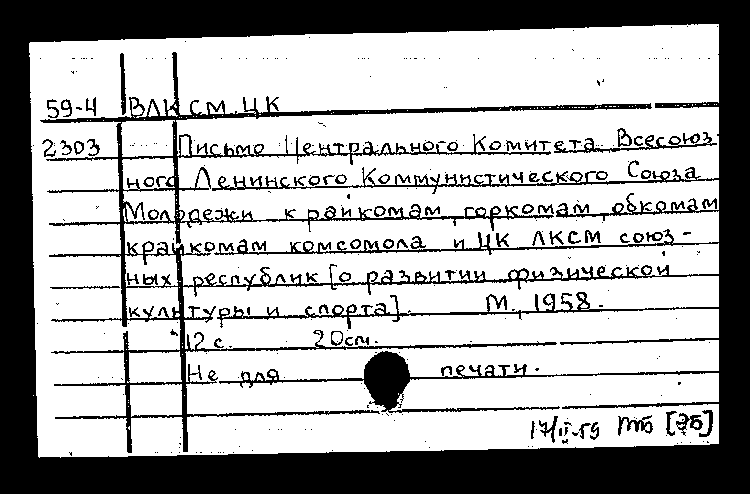 59-4 ВЛКСМ. ЦК
2303 Письмо Центрального Комитета Всесоюз-
ного Ленинского Коммунистического Союза
Молодежи к райкомам, горкомам, обкомам
крайкомам комсомола и ЦК ЛКСМ союз-
ных республик [о развитии физической
культуры и спорта]. М., 1958.
12 с. 20 см.
Не для печати.
17/II-59 тб [ЭБ]